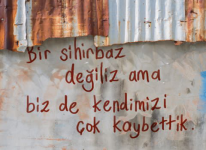 Bir sihirbaz
değiliz ama
biz de kendimizi
çok kaybettik.